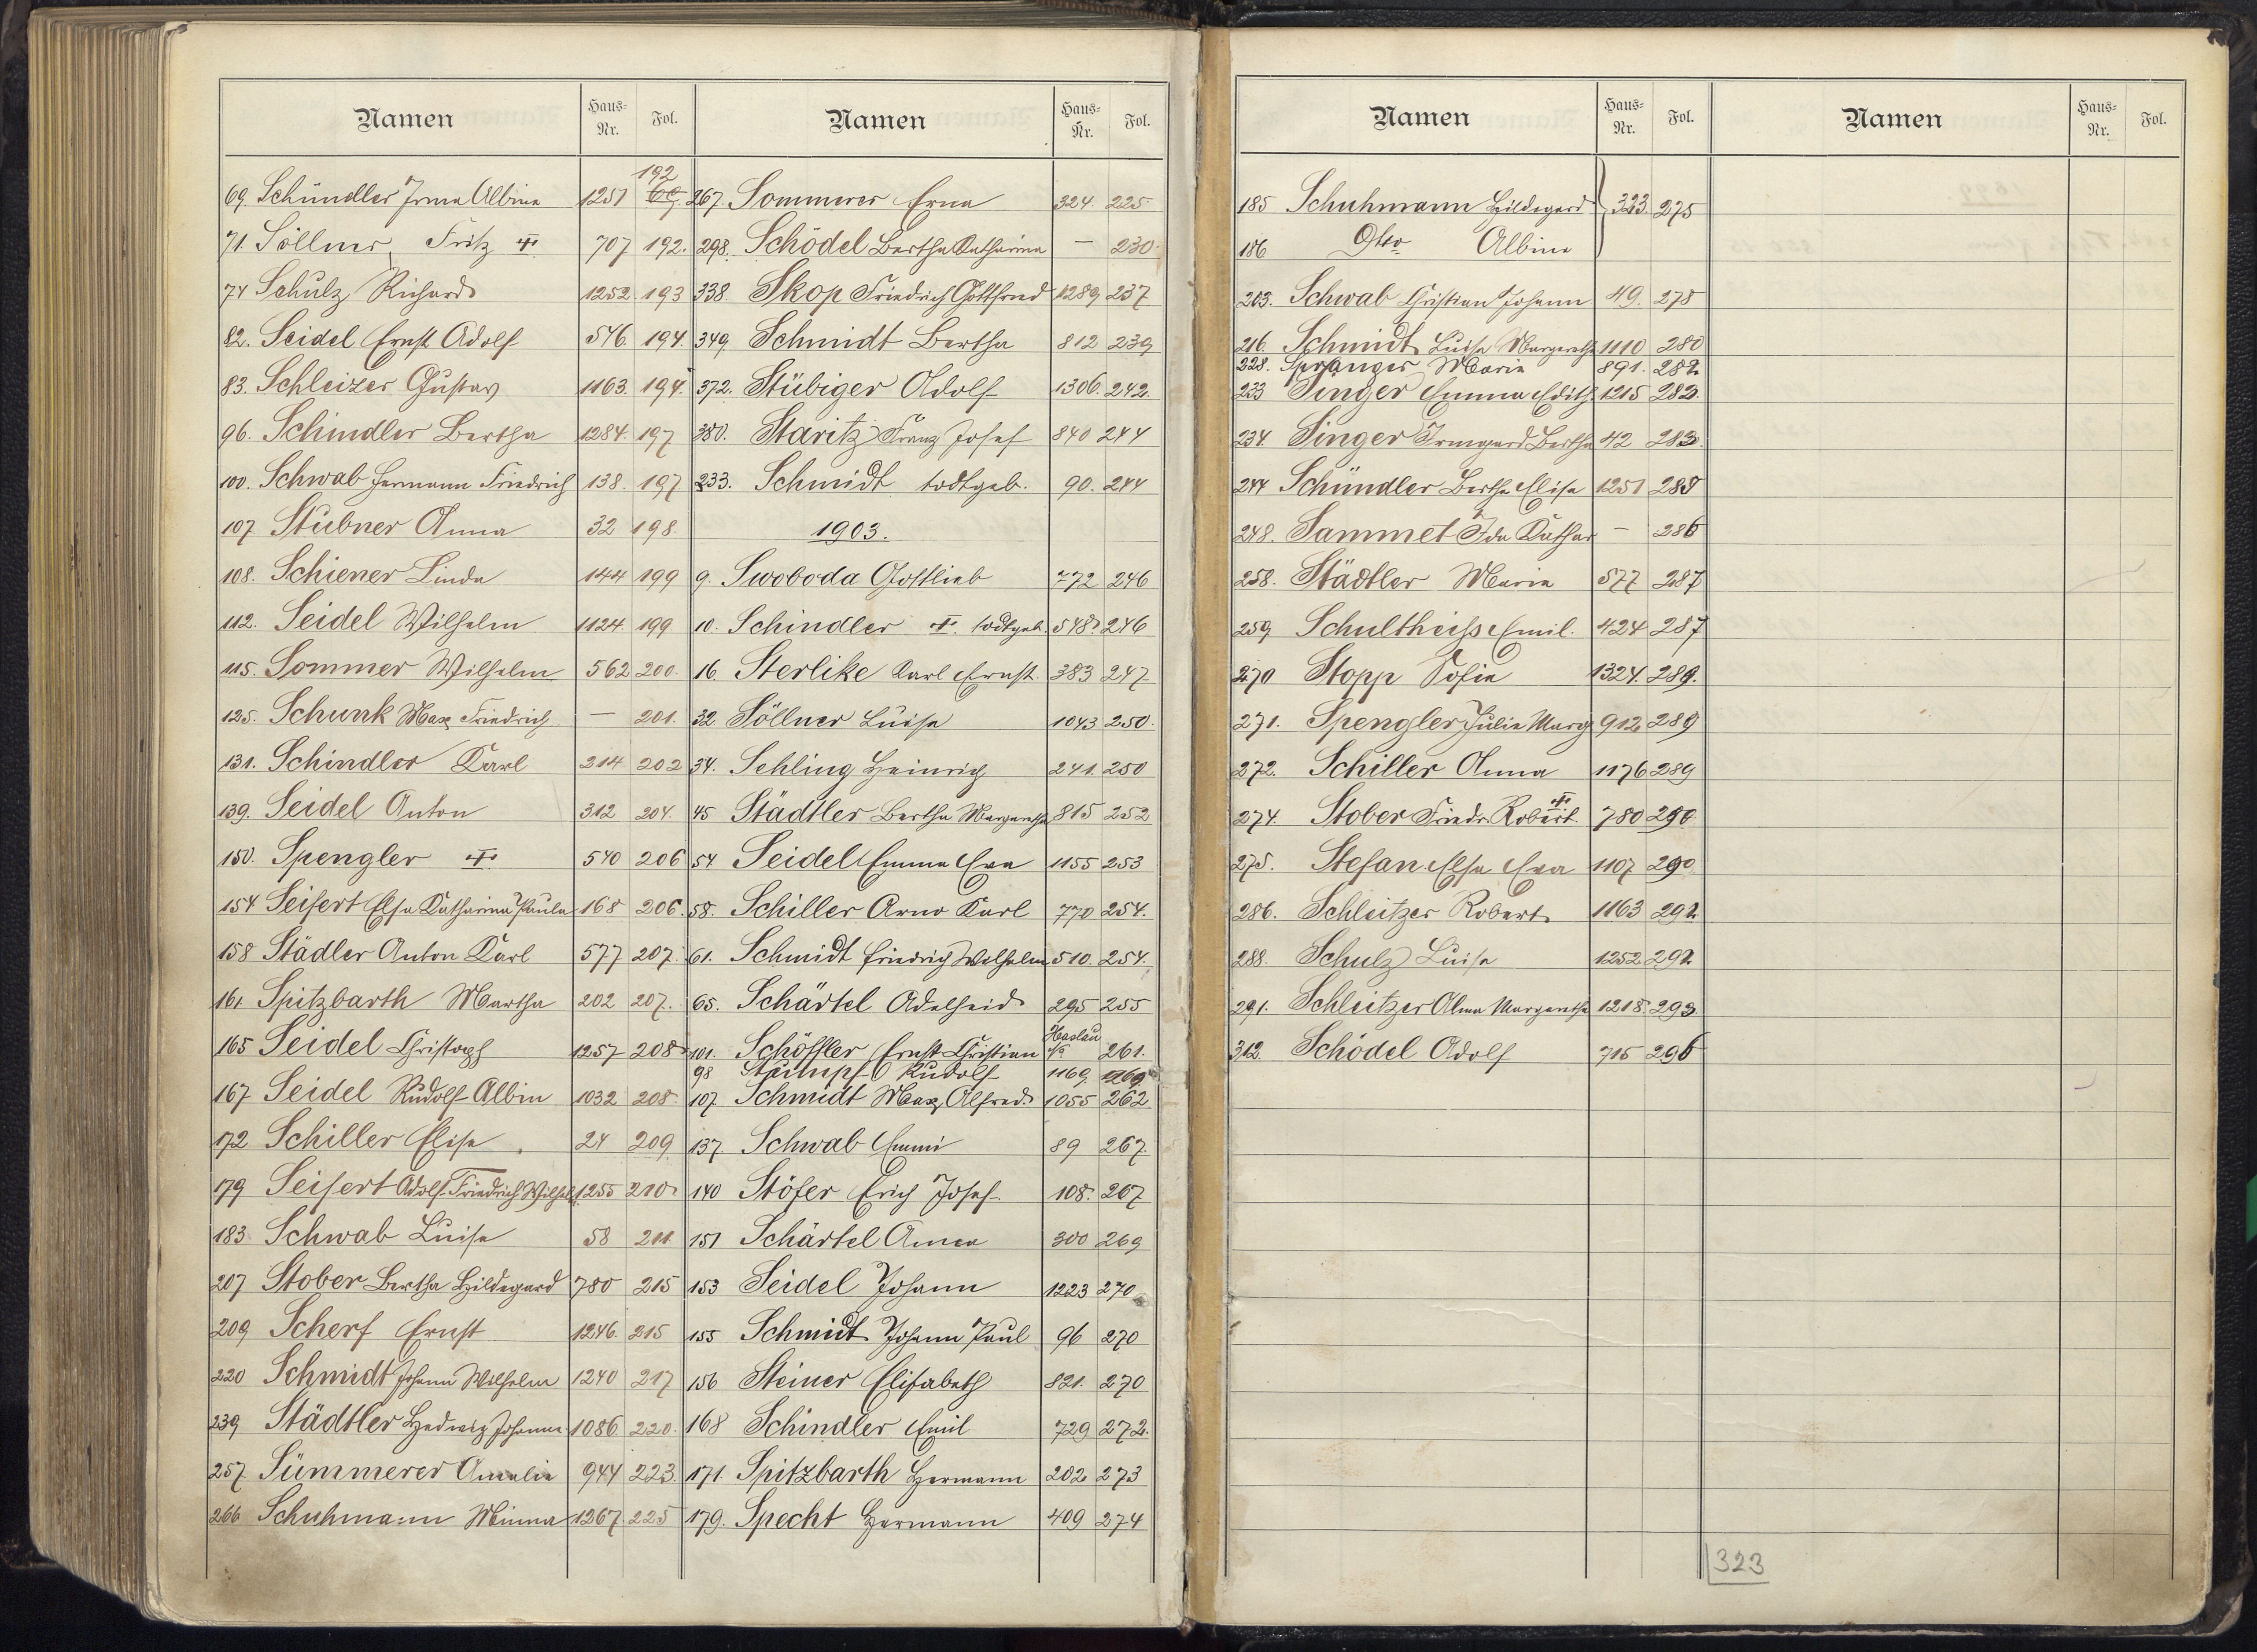 Namen Haus-Nr. Fol.
69. Schündler Irma Albina 1251 192
71. Söllner, Fritz 707 192.
74 Schulz Richard 1252. 193
82. Seidel Ernst Adolf 546 194.
83. Schleizer Gustav 1163. 194.
96. Schindler Bertha 1284. 197
100. Schwab Hermann Friedrich 138. 197
107. Stübner Anna 32 198.
108. Schiener Linda 144 199
112. Seidel Wilhelm 1124. 199
115. Sommer Wilhelm 562 200.
125. Schunk Max Friedrich — 201.
131. Schindler Karl 214 202
139. Seidel Anton 312 204.
150. Spengler 540 206
154 Seifert Elsa Katharina Paula 168 206.
158 Städler Anton Karl 577 207.
161 Spitzbarth Martha 202 207.
165 Seidel Christoph 1257 208
167 Seidel Rudolf Albin 1032 208.
172 Schiller Elise 24 209
179 Seifert Adolf Friedrich Wilhelm 1255 210
183 Schwab Luise 58 211
207 Stober Bertha Hildegard 780 215
209 Scherf Ernst 1246. 215
220 Schmidt Johann Wilhelm 1240 217
239 Städtler Hedwig Johanna 1086. 220.
257. Sümmerer Amalie 944 223.
266 Schuhmann Minna 1267. 225
Namen Haus-Nr. Fol.
267. Sommerer Erna 324. 225
298. Schödel Bertha Katharina — 230
338. Skop Friedrich Gottfried 1289 237
349 Schmidt Bertha 812 239
372. Stübiger Adolf 1306. 242.
380. Staritz Franz Josef 840 244
233. Schmidt todtgeb. 90. 244
1903.
9. Swoboda Gottlieb 772 246
10. Schindler todtgeb. 548 246
16. Sterlike Karl Ernst 383 247
32. Söllner Luise 1043 250.
34. Sehling Heinrich 241. 250
45 Städtler Bertha Margaretha 815 252
54 Seidel Emma Eva 1155 253
58. Schiller Arno Karl 770 254.
61. Schmidt Friedrich Wilhelm 510. 254.
65. Schärtel Adelheid 295 255
101. Schöffler Ernst Christian Haslau 261.
98 Stumpf Rudolf 1169.
107. Schmidt Max Alfred 1055 262
137. Schwab Emmi 89 267.
140 Stöfer Erich Josef 108. 267
151 Schärtel Anna 300 269
153 Seidel Johann 1223 270
155 Schmidt Johann Paul 96 270
156 Steiner Elisabeth 821. 270
168 Schindler Emil 729 272.
171 Spitzbarth Hermann 202 273
179. Specht Hermann 409 274
Namen Haus-Nr. Fol.
185 Schuhmann Hildegard 323. 275
186 Dto Albine
203. Schwab Christian Johann 49. 278
216 Schmidt Luise Margaretha 1110 280
228. Spranger Maria 891. 282
233 Singer Emma Edith 1215 283.
234. Singer Irmgard Bertha 42 283.
244 Schündler Bertha Elise 1251 285
248. Sammet Ida Kathar — 286
258. Städtler Maria 577 287
259 Schultheiss Emil. 424 287
270 Stopp Sofie 1324. 289.
271. Spengler Julie Marg 912 289
272. Schiller Anna 1176 289
274. Stober Friedr. Robert. 780 290
275. Stefan Elsa Eva 1107 290.
286. Schleitzer Robert 1163 292
288. Schulz Luise 1252 292
291. Schleitzer Alma Margaretha 1218. 293.
312. Schödel Adolf 715 296
Namen Haus-Nr. Fol.
323